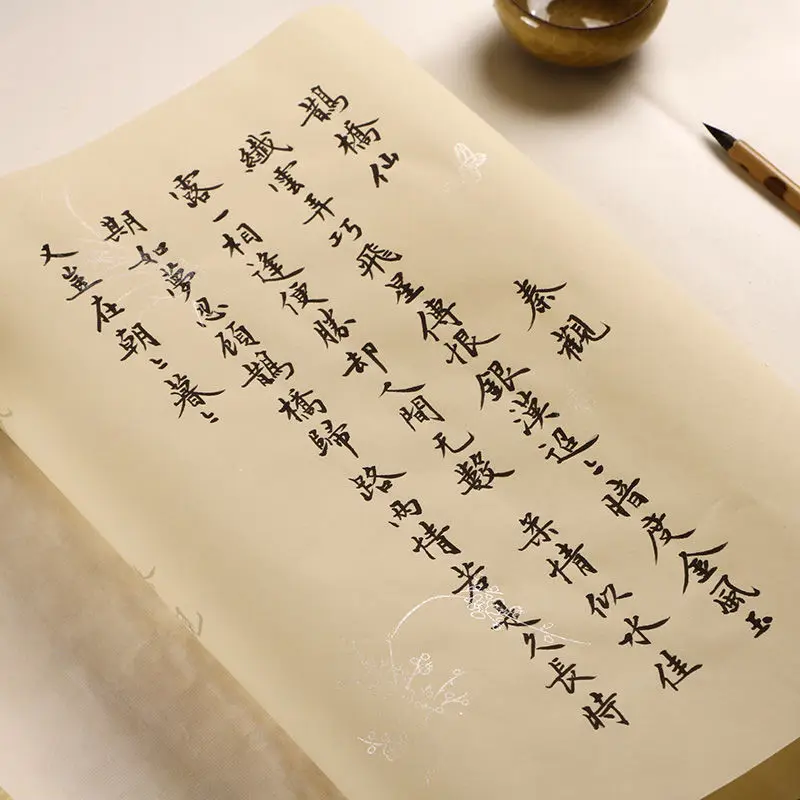 鵲橋仙 秦觀
纖雲弄巧飛星傳恨銀漢迢〻暗度金風玉
露一相逢便勝却人間无數 柔情似水佳
期如夢忍顧鵲橋歸路两情若是久長時
又豈在朝〻暮〻